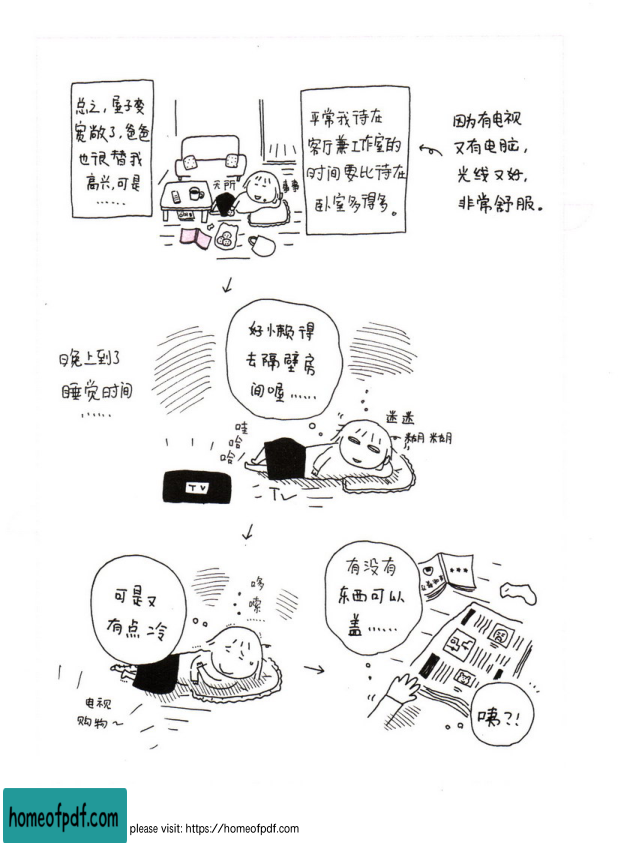 总之,屋子变
宽敞了,爸爸
也很替我
高兴,可是
……
无所
事事
平常我待在
客厅兼工作室的
时间要比待在
卧室多得多。
因为有电视
又有电脑,
光线又好,
非常舒服。
晚上到了
睡觉时间
……
好懒得
去隔壁房
间喔……
迷迷
糊糊
哇
哈
哈
TV
TV
可是又
有点冷
哆
嗦
电视
购物~
有没有
东西可以
盖……
咦?!
homeofpdf.com
please visit: https://homeofpdf.com